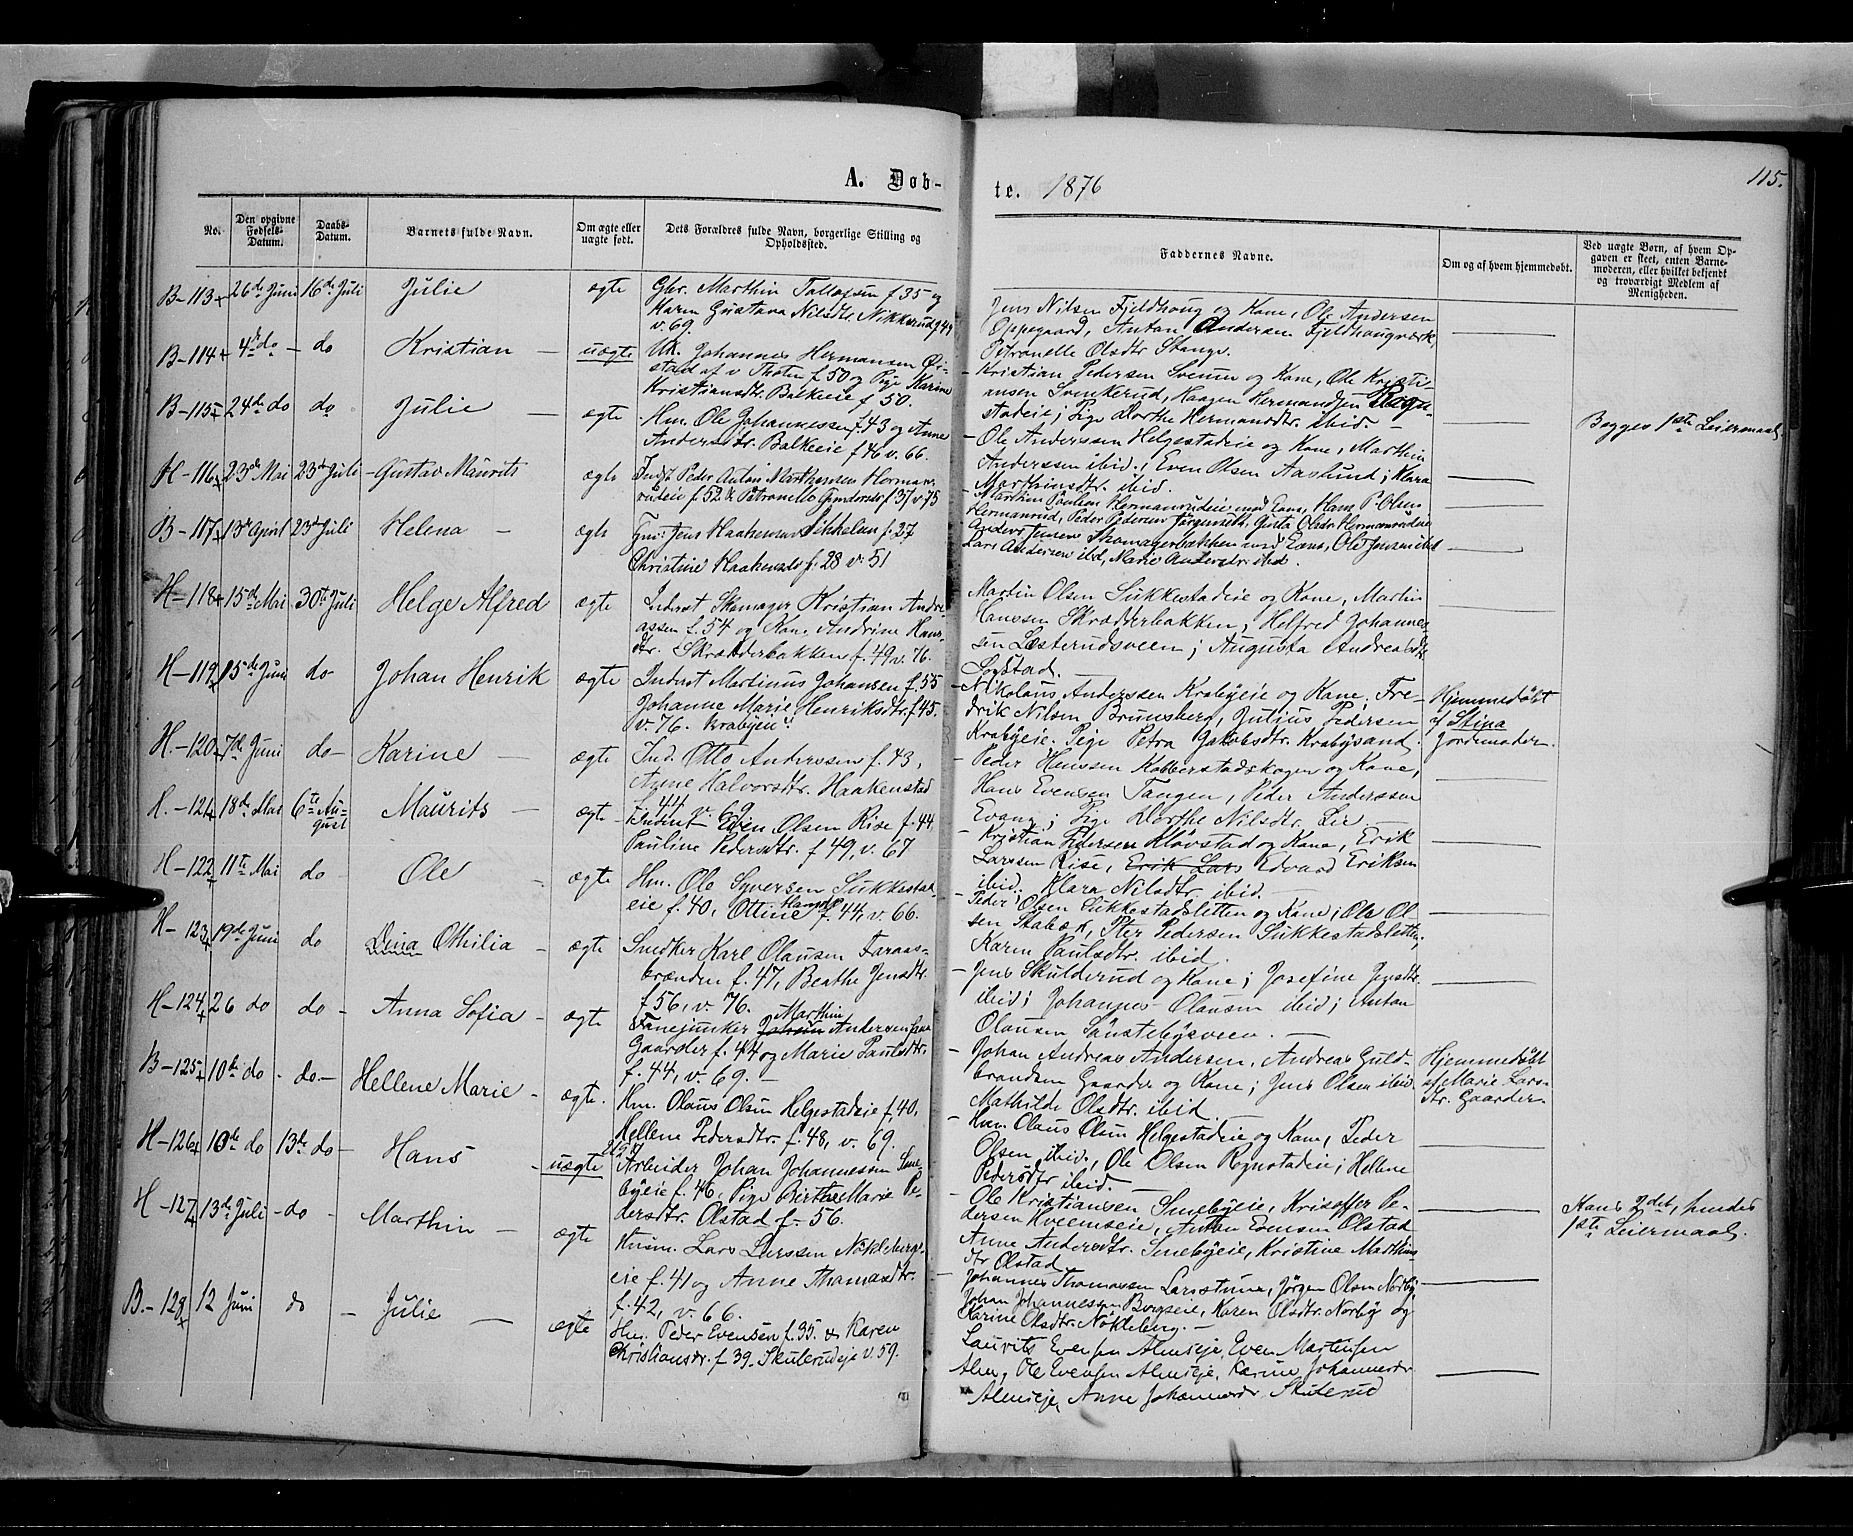 A. Døb-
te. 1876
115.
No.
Den opgivne Fødsels-Datum.
Daabs-Datum.
Barnets fulde Navn.
Om ægte eller uægte født.
Dets Forældres fulde Navn, borgerlige Stilling og Opholdssted.
Faddernes Navne.
Om og af hvem hjemmedøbt.
Ved uægte Børn, af hvem Opgaven er skeet, enten Barnemoderen, eller hvilket bekjendt og troværdigt Medlem af Menigheden.
B-113 26de Juni 16de Juli Julie ægte
Gbr. Marthin Tollefsen f 35 og
Karen Gustava Nilsdtr. Nikkerud
v. 69.
Jens Nilsen Fjeldhoug og Kone, Ole Andersen
Oppegaard, Anton Andersen Fjeldhougværk,
Petronelle Olsdtr Stange.
B-114 4de do do Kristian uægte
Uk. Johannes Hermansen Øi-
stad af v Thoten f 50 og Pige Karine
Kristiansdtr. Balkeeie f 50.
Kristian Pedersen Sveum og Kone, Ole Kristi-
ansen Svenkerud, Haagen Hermandsen Rogn-
stadeie; Pige Dorthe Hermansdtr. ibid.
Begges 1ste Leiermaal.
B-115 24de do do Julie ægte
Hm. Ole Johannessen f. 43 og Anne
Andersdtr. Balkeeie f 46 v. 66.
Ole Anderssen Helgestadeie og Kone, Marthin
Anderssen ibid., Even Olsen Aaslund; Klara
Marthinsdtr. ibid.
H-116 23de Mai 23de Juli Gustav Maurits ægte
Indst Peder Anton Marthinsen Herman-
rudeie f 52 & Petronelle Gundersdtr f 37 v 75
Marthin Paulsen Hermanrudeie med Kone, Hans P. Olsen
Hermanrud, Peder Pedersen Jørgenset, Gusta Olsdtr Hermanrudeie
B-117 13de April 23de Juli Helena ægte
Gm: Jens Haakensen Mikkelsen f. 27
Christine Haakensdtr f. 28 v. 51
Anders Jensen Skomagerbakken med Kone, Ole Jensen ibid
Lars Andersen ibid, Marie Andersdtr ibid.
H-118 15de Mai 30te Juli Helge Alfred ægte
Inderst Skomager Kristian Andre-
assen f. 54 og Kone Andrine Hans-
dtr. Skrædderbakken f. 49 v. 76.
Martin Olsen Sukkestadeie og Kone, Martin
Hanssen Skrædderbakken, Helfred Johannes-
sen Læsterudsveen; Augusta Andreasdtr
Sogstad.
H-119 15de Juni do Johan Henrik ægte
Inderst Martinus Johansen f. 55
Johanne Marie Henriksdtr. f 45.
v. 76. Krabyeie.
Nikolaus Anderssen Krabyeie og Kone; Fre-
drik Nilsen Brunsberg, Julius Pedersen
Krabyeie. Pige Petra Jakobsdtr. Krabysand.
Hjemmedøbt
af Stina
Jordemoder.
H-120 7de Juni do Karine ægte
Ind. Otto Anderssen f. 43,
Anne Halvorsdtr. Haakenstad
f 44 v. 69
Peder Hanssen Kobberstadskogen og Kone,
Hans Evensen Tangen, Peder Anderssen
Evang; Pige Dorthe Nilsdtr. Lie.
H-121 18de Mai 6te August Maurits ægte
Inderst Even Olsen Rise f. 44,
Pauline Pedersdtr. f 49, v. 67
Kristian Pedersen Kløvstad og Kone, Erik
Larssen Rise, Erik Lars Edvard Eriksen
ibid. Klara Nilsdtr ibid.
H-122 11te Mai do Ole ægte
Hm. Ole Syversen Sukkestad-
eie f. 40, Ottine Hansd. f 44, v. 66.
Peder Olsen Sukkestadsletten og Kone; Ole Ol-
sen Skabæk, Peter Pedersen Sukkestadsletten,
Karen Paulsdtr. ibid.
H-123 19de Juni do Dina Othilia ægte
Snedker Karl Olausen Faraas-
brænden f. 47, Beathe Jensdtr.
f 56, v. 76.
Jens Skulderud og Kone; Josefine Jensdtr.
ibid; Johannes Olausen ibid; Anton
Olausen Sønstebysveen.
H-124 26 do do Anna Sofia ægte
Fanejunker Johan Marthin Andersen
Gaarder f. 44 og Marie Paulsdtr.
f. 44, v. 69.
Johan Andreas Andersen, Andreas Guld-
brandsen Gaarder og Kone; Jens Olsen ibid
Mathilde Olsdtr. ibid.
Hjemmedøbt
af Marie Lars-
dtr. Gaarder.
B-125 10de do do Hellene Marie ægte.
Hm. Olaus Olsen Helgestadeie f. 40,
Hellene Pedersdtr. f. 48, v. 69.
Hm. Olaus Olsen Helgestadeie og Kone, Peder
Olsen ibid., Ole Olsen Rognstadeie; Hellene
Pedersdtr ibid.
H-126 10de do 13de do Hans uægte
Arbeider Johan Johannessen Sme-
byeie f. 46, Pige Birthe Marie Pe-
dersdtr. Olstad f. 56.
Ole Kristiansen Smebyeie, Kristoffer Pe-
dersen Kveemseie, Anton Evensen Olstad
Anne Andersdtr. Smebyeie, Kristine Mathias-
dtr Olstad
Hans 2det, hendes
1ste Leiermaal.
H-127 13de Juli do Marthin ægte
Husm. Lars Larssen Nøkleberg-
eie f. 41 og Anne Thomasdtr.
f. 42, v. 66.
Johannes Thomassen Larsstuen, Jørgen Olsen Norby
Johan Johannessen Borgseie, Karen Olsdtr. Norby og
Karine Olsdtr. Nøkleberg.
B.-128 12 Juni do Julie ægte
Hm. Peder Evensen f. 35. & Karen
Christiansdr. f 39. Skulerudeje v. 59.
Laurits Evensen Almseje, Even Martensen
Alm, Ole Evensen Almseje, Karine Johannesdr
Almseje, Anne Johannesdr Skulerud